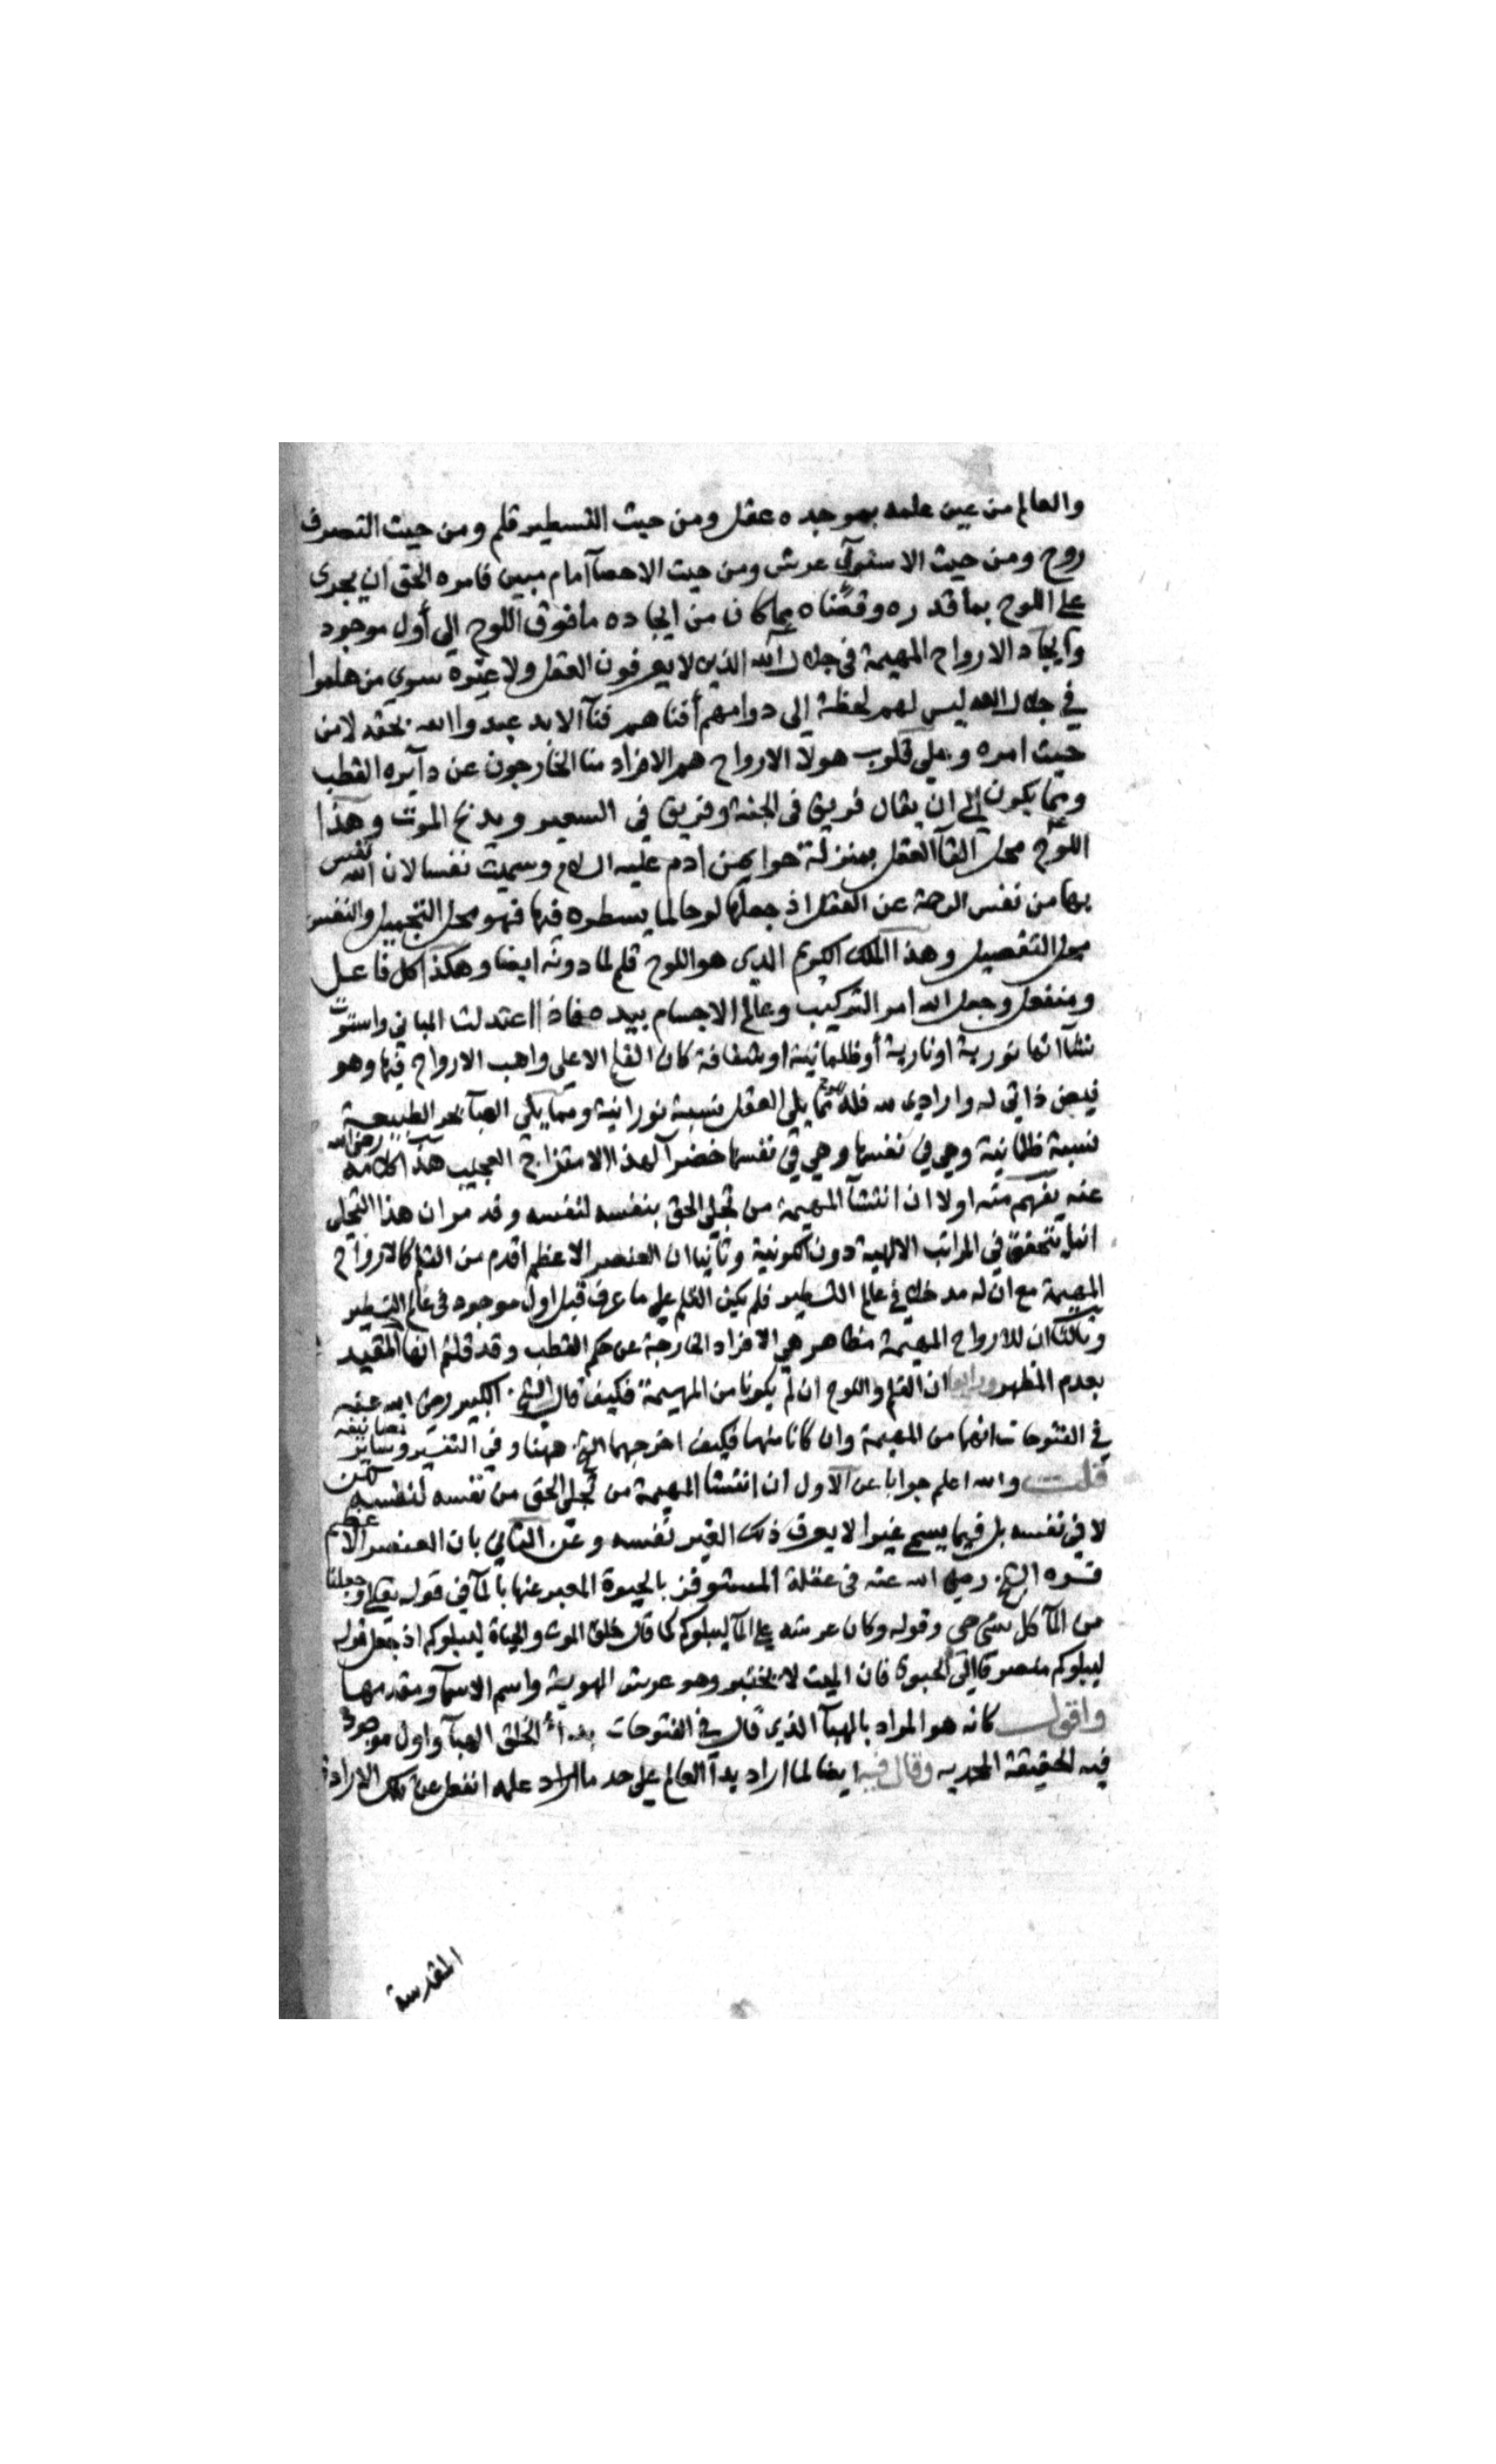 والعالم من عين علمه بموجده عقل ومن حيث التسطير قلم ومن حيث التصرف
روح ومن حيث الاستوآى عرش ومن حيث الاحصآ امام مبين فامره الحق ان يجرى
على اللوح بما قدره وقضاه مما كان من ايجاده ما فوق اللوح الى أول موجود
وايجاد الارواح المهيمة في جلال الله الذين لا يعرفون العقل ولا غيره سوى من هاموا
في جلال الله ليس لهم لحظة الى دوامهم أفناهم فنآ الابد عبدوا الله بحقه لا من
حيث امره وعلى قلوب هولا الارواح هم الافراد منا الخارجون عن دآيره القطب
ومما يكون الى ان يقال فريق في الجنة وفريق في السعير ويذبح الموت وهذا
اللوح محل القآ العقل بمنزلة حوا من ادم عليه السلام وسميت نفسا لان الله نفس
بها من نفس الرحمة عن العقل اذ جعلها لوحا لما يسطره فيها فهو محل التجميل والنفس
محل التفصيل وهذا الملك الكريم الذى هو اللوح قلم لما دونه ايضا وهكذا كل فاعل
ومنفعل وجعل الله امر التركيب وعالم الاجسام بيده فاذا اعتدلت المباني واستوت
نشآاتها نورية او نارية أو ظلمانية او شفافة كان القلم الاعلى واهب الارواح فيها وهو
فيض ذاتي له وارادي لله فله مما يلى العقل نسبة نورانية ومما يلى الهبآ بحر الطبيعة
نسبة ظلمانية وهي في نفسها وهي في نفسها خضرآ لهذا الامتزاج العجيب هذا كلامه رضى الله
عنه يفهم منه اولا ان انتشآ المهيمة من تجلي الحق بنفسه لنفسه وقد مر ان هذا التجلى
انما يتحقق في المراتب الالهية دون الكونية وثانيا ان العنصر الاعظم اقدم من القلم كالارواح
المهيمة مع ان له مدخلا في عالم التسطير فلم يكن القلم على ما عرف قبل اول موجود في عالم التسطير
وثالثا ان للارواح المهيمة مظاهر هي الافراد الخارجة عن حكم القطب وقد قلتم انها المقيد
بعدم المظهر ورابعا ان القلم واللوح ان لم يكونا من المهيمة فكيف قال الشيخ الكبير رضى الله عنه
في الفتوحات انهما من المهيمة وان كانا منها فكيف اخرجهما الشيخ ههنا وفي التفسير وساير تصانيفه
قلت والله اعلم جوابا عن الاول ان انتشا المهيمة من تجلى الحق من نفسه لنفسه لكن
لا في نفسه بل فيما يسمى غيرا لا يعرف ذلك الغير نفسه وعن الثاني بان العنصر الاعظم
فسره الشيخ رضى الله عنه في عقلة المستوفز بالحيوة المعبر عنها بالمآ في قوله تعلى وجعلنا
من المآ كل شى حى وقوله وكان عرشه على المآ ليبلوكم كما قال خلق الموت والحياة ليبلوكم اذ جعل قوله
ليبلوكم منصرفا الى الحيوة فان الميت لا يختبر وهو عرش الهوية واسم الاسمآ ومقدمها
واقول كانه هو المراد بالهبآ الذي قال في الفتوحات بدأ الخلق الهبآ واول موجود
فيه الحقيقة المحديه وقال فيه ايضا لما اراد بدآ العالم على حد ما اراد علمه انفعل عن تلك الارادة
المقدسة